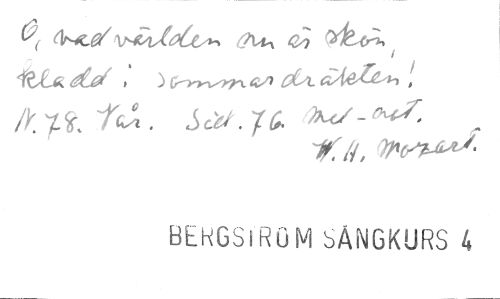 O, vad världen nu är skön,
klädd i sommardräkten!
N. 78. Vår. Sid. 76. Mel-not.
W. A. Mozart.
BERGSTRÖM SÅNGKURS 4